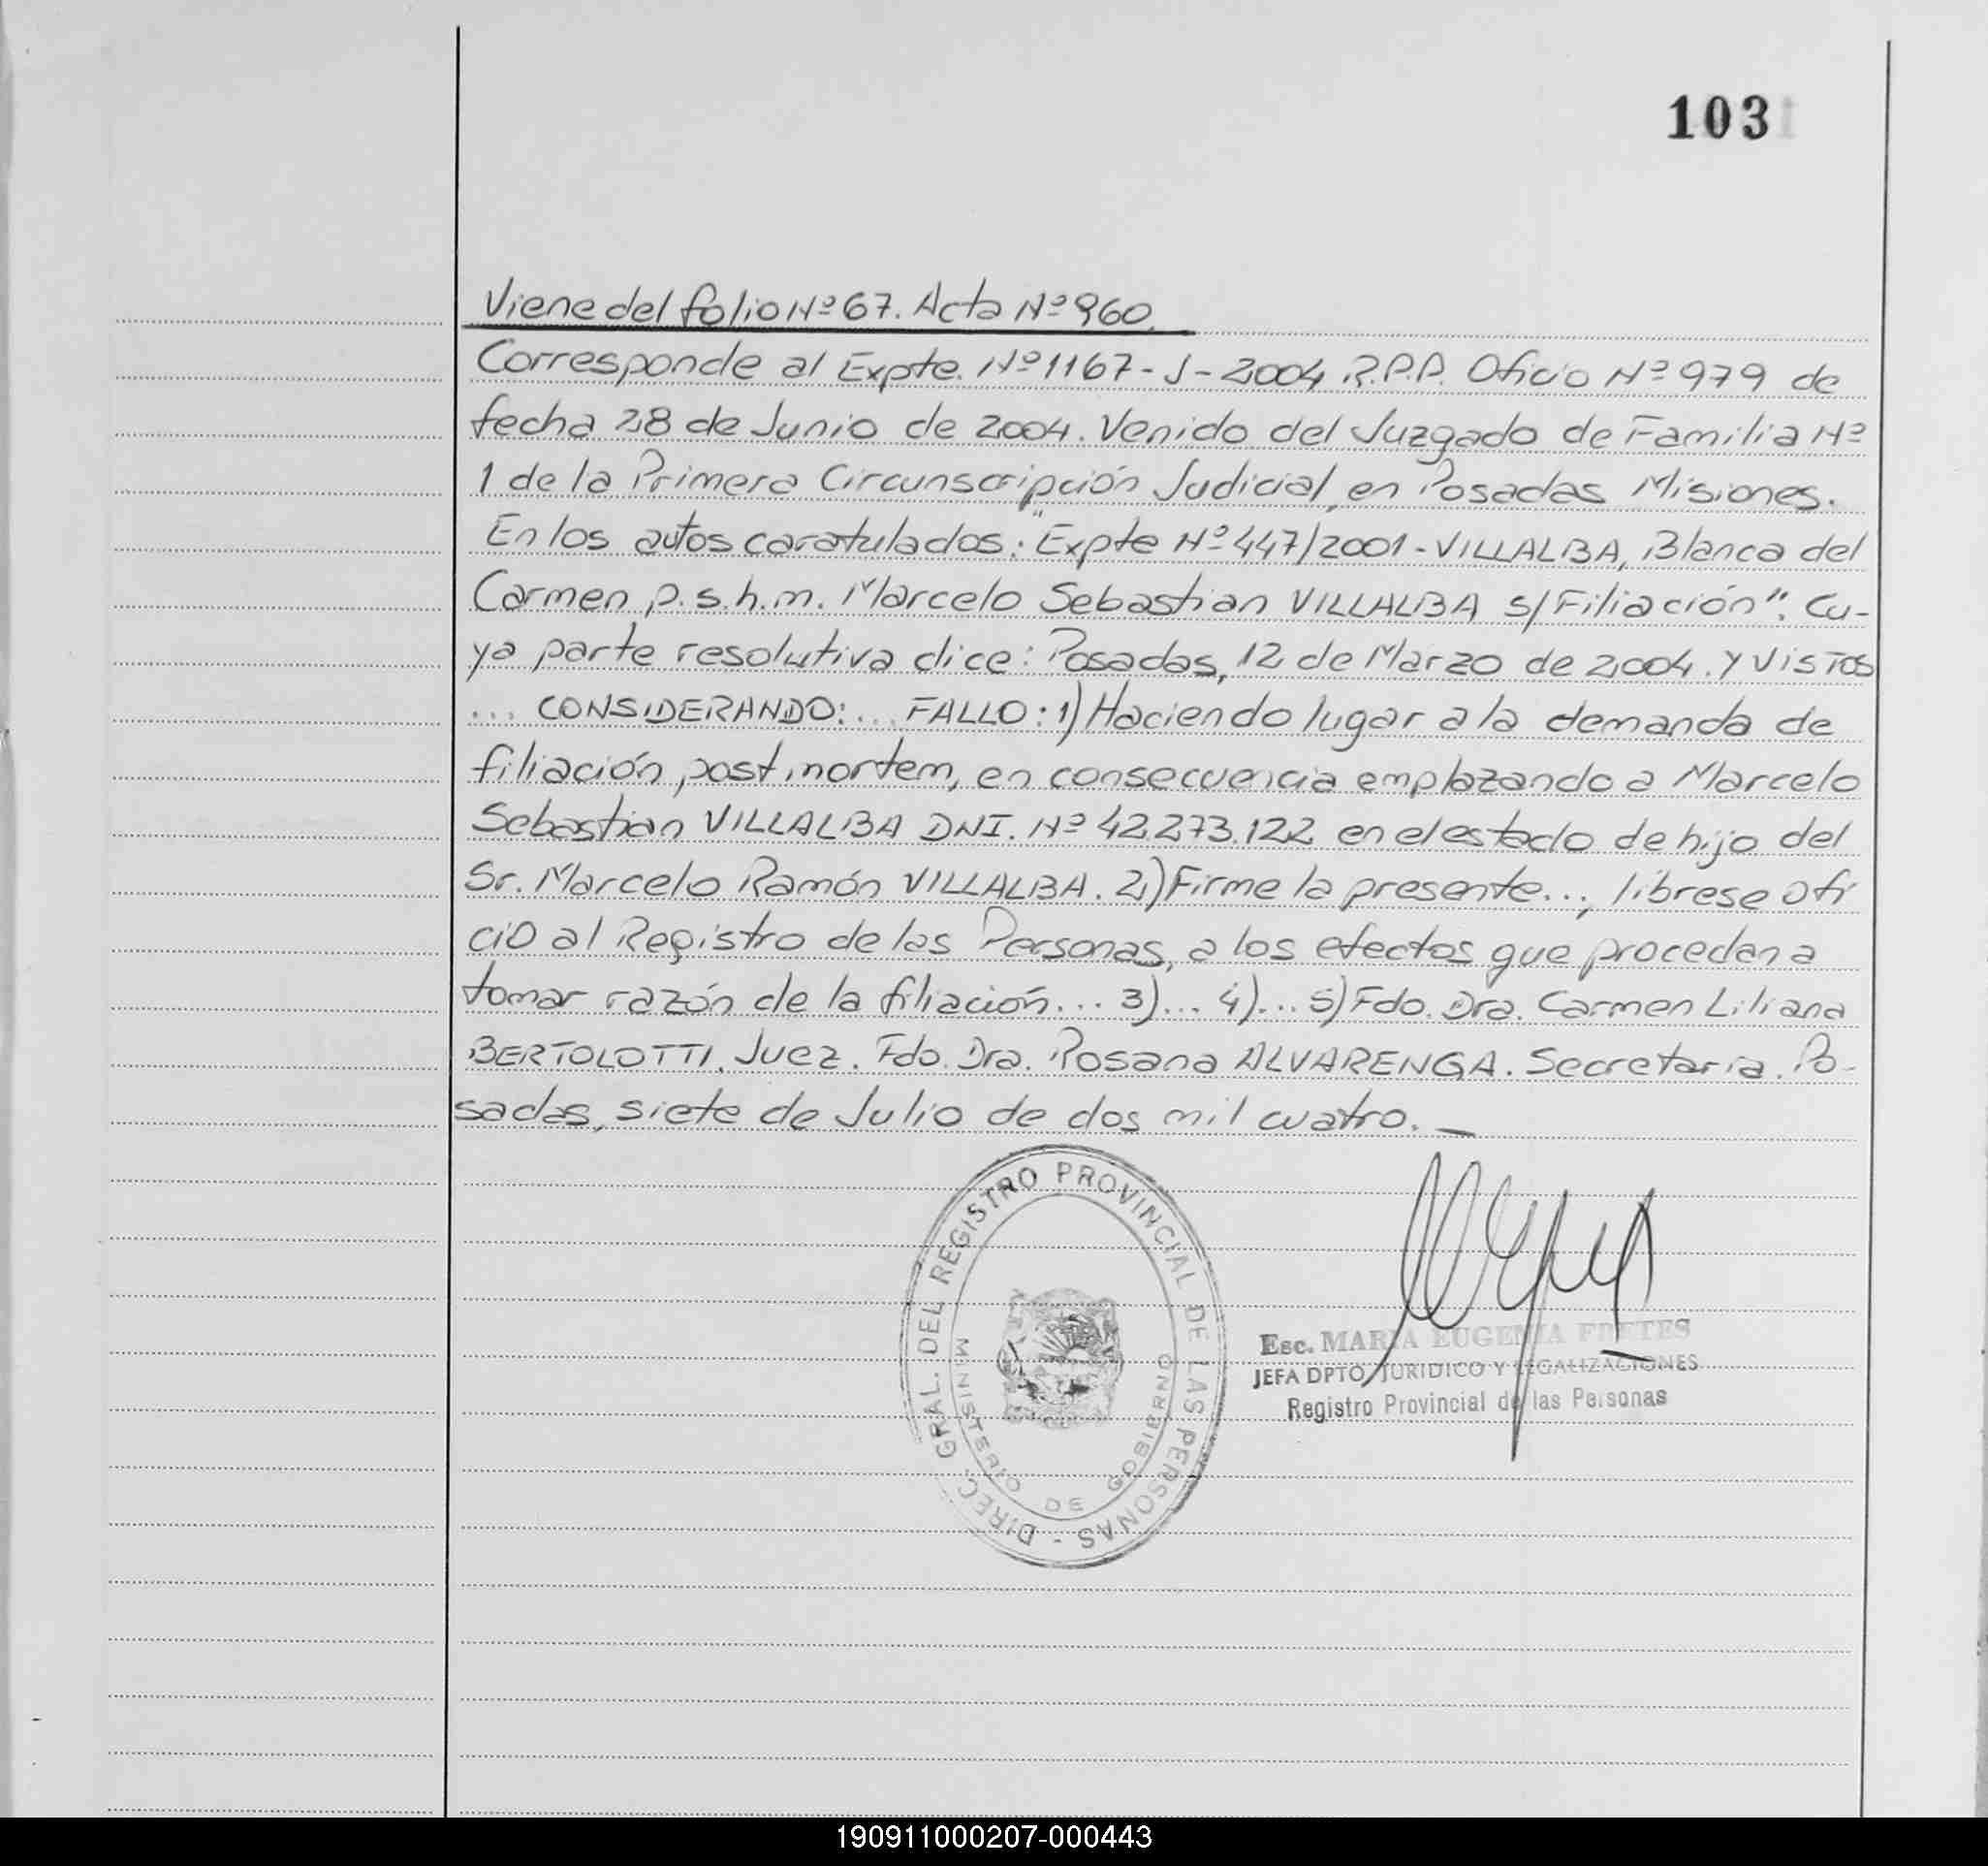 103
Viene del folio Nº 67. Acta Nº 960.
Corresponde al Expte. Nº 1167-J-2004 R.P.P. Oficio Nº 979 de
fecha 28 de Junio de 2004. Venido del Juzgado de Familia Nº
1 de la Primera Circunscripción Judicial, en Posadas Misiones.
En los autos caratulados: "Expte Nº 447/2001-VILLALBA, Blanca del
Carmen p.s.h.m. Marcelo Sebastian VILLALBA S/Filiación". Cu-
ya parte resolutiva dice: Posadas, 12 de Marzo de 2004. Y VISTOS
... CONSIDERANDO:... FALLO: 1) Haciendo lugar a la demanda de
filiación, post mortem, en consecuencia emplazando a Marcelo
Sebastian VILLALBA DNI. Nº 42.273.122 en el estado de hijo del
Sr. Marcelo Ramón VILLALBA. 2) Firme la presente..., líbrese ofi
cio al Registro de las Personas, a los efectos que procedan a
tomar razón de la filiación... 3)... 4)... 5) Fdo. Dra. Carmen Liliana
BERTOLOTTI. Juez. Fdo. Dra. Rosana ALVARENGA. Secretaria. Po-
sadas, siete de Julio de dos mil cuatro. _
DIREC. GRAL. DEL REGISTRO PROVINCIAL DE LAS PERSONAS -
MINISTERIO DE GOBIERNO
Esc. MARIA EUGENIA FRETES
JEFA DPTO. JURIDICO Y LEGALIZACIONES
Registro Provincial de las Personas
190911000207-000443